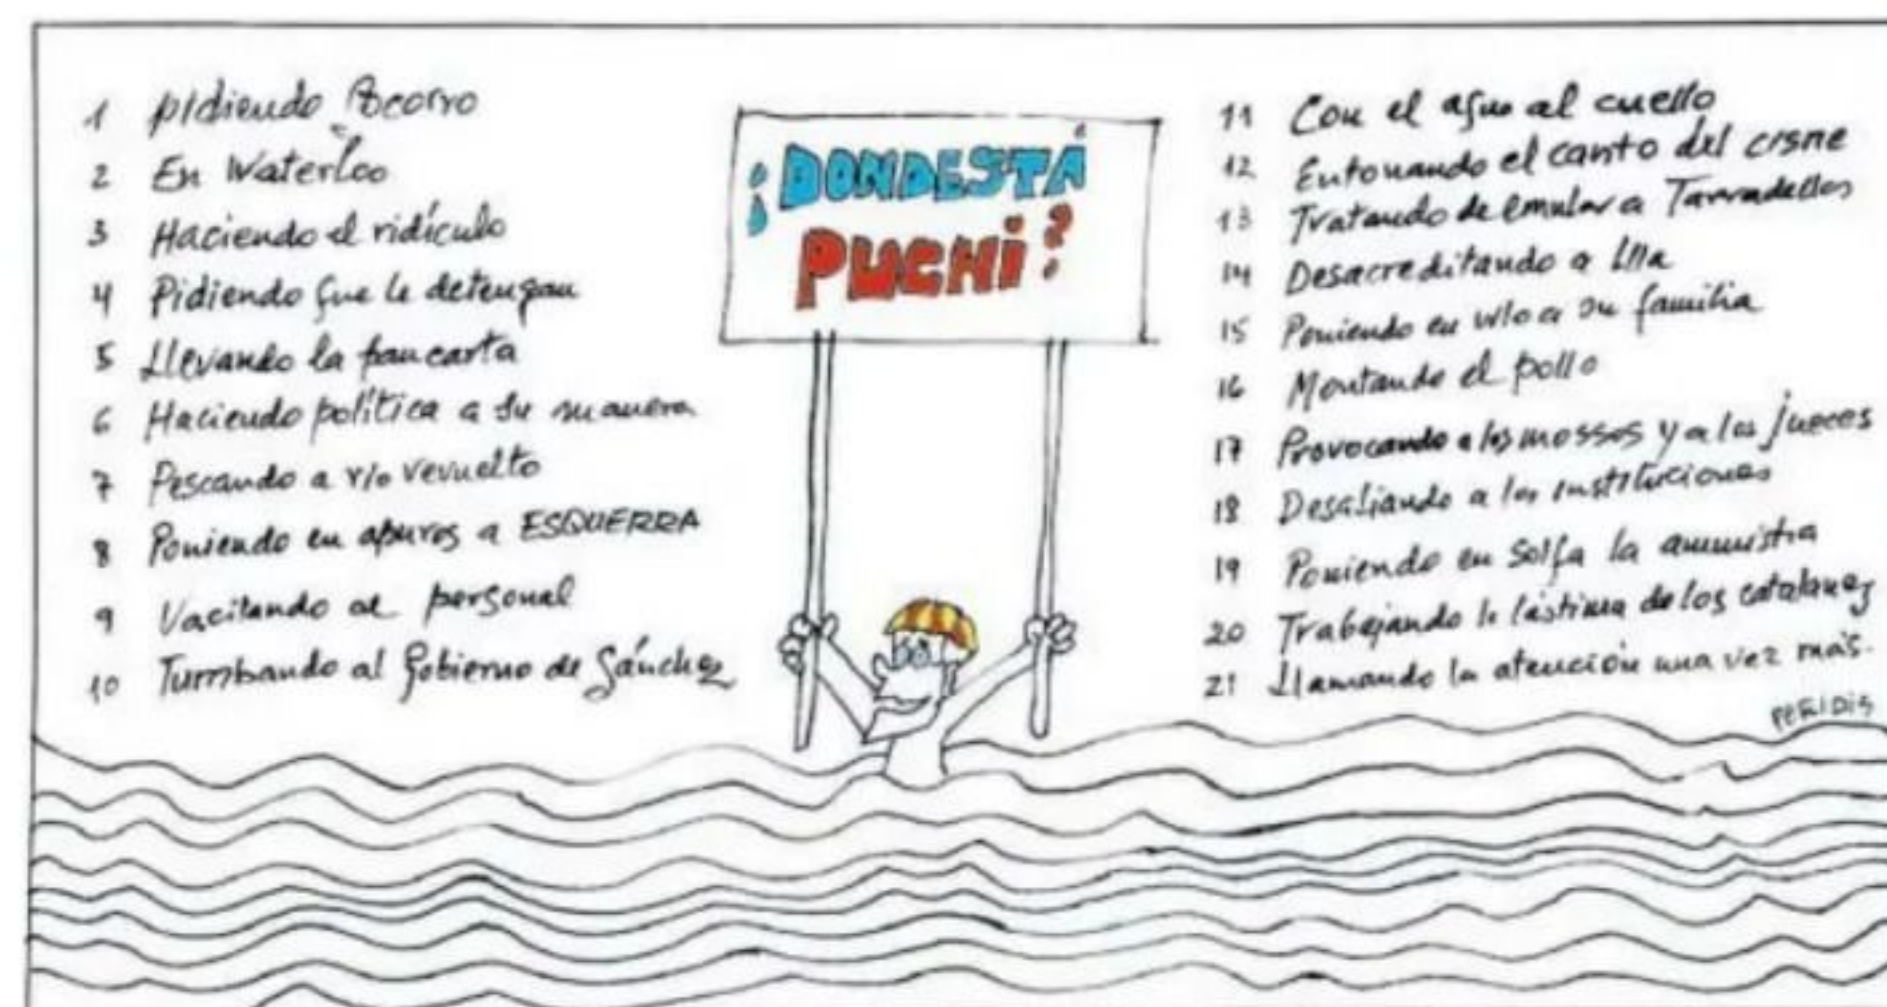 1 pidiendo Socorro
2 En Waterloo
3 Haciendo el ridículo
4 Pidiendo que le detengan
5 Llevando la pancarta
6 Haciendo política a su manera
7 Pescando a río revuelto
8 Poniendo en apuros a ESQUERRA
9 Vacilando al personal
10 Tumbando al Gobierno de Sánchez
¿DONDESTÁ
PUCHI?
11 Con el agua al cuello
12 Entonando el canto del cisne
13 Tratando de emular a Tarradellas
14 Desacreditando a Illa
15 Poniendo en vilo a su familia
16 Montando el pollo
17 Provocando a los mossos y a los jueces
18 Desafiando a las instituciones
19 Poniendo en solfa la amnistía
20 Trabajando la lástima de los catalanes
21 Llamando la atención una vez más.
PERIDIS